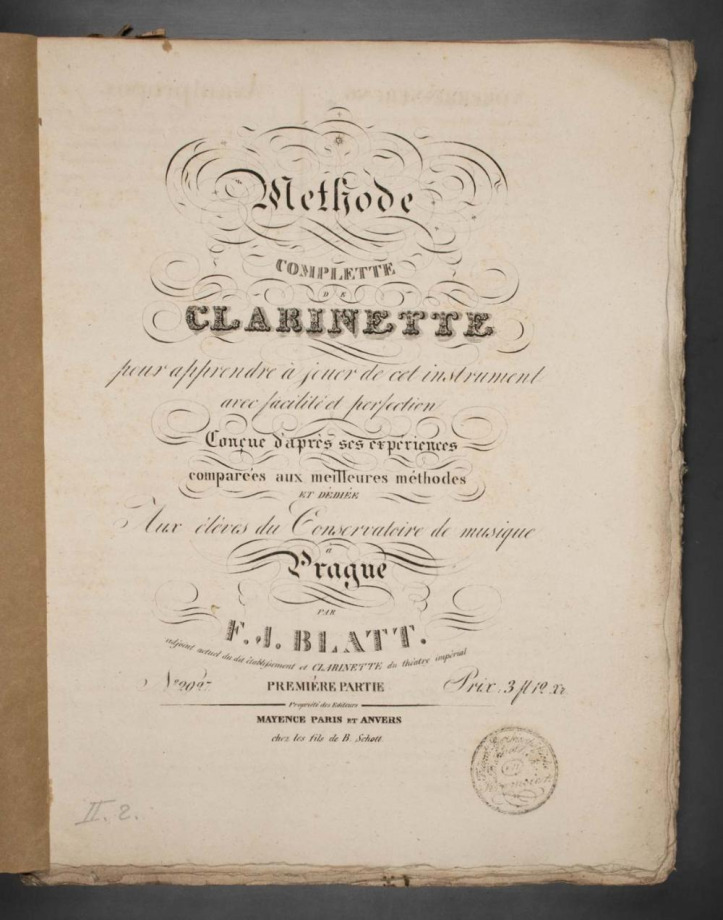 Methode
COMPLETTE
DE
CLARINETTE
pour apprendre à jouer de cet instrument
avec facilité et perfection
Conçue d'après ses expériences
comparées aux meilleures méthodes
ET DÉDIÉE
Aux élèves du Conservatoire de musique
à
Prague
PAR
F. J. BLATT.
adjoint actuel du dit établissement et CLARINETTE du théatre impérial
PREMIÉRE PARTIE
Prix. 3 fl 12 Xr
Propriété des Editeurs
MAYENCE PARIS ET ANVERS
chez les fils de B. Schott.
II. 2.